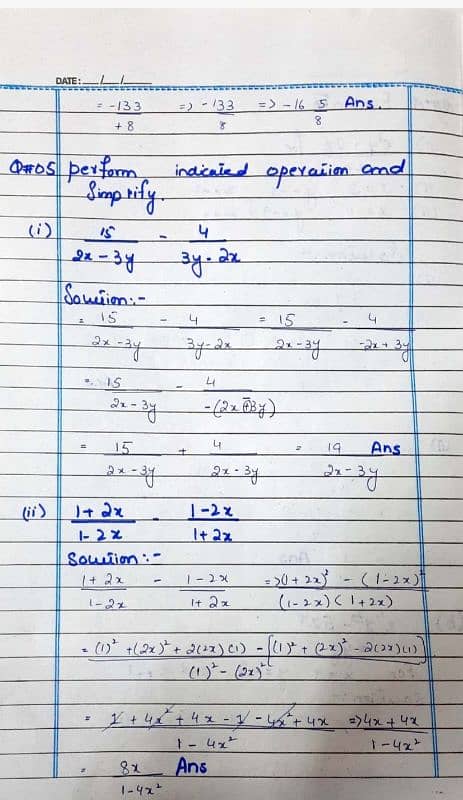 DATE: __/__/__
= -133/+8 => -133/8 => -16 5/8 Ans.
Q#05 perform indicated operation and
Simplify.
(i) 15/(2x - 3y) - 4/(3y - 2x)
Solution:-
= 15/(2x - 3y) - 4/(3y - 2x) = 15/(2x - 3y) - 4/(-2x + 3y)
= 15/(2x - 3y) - 4/-(2x - 3y)
= 15/(2x - 3y) + 4/(2x - 3y) = 19/(2x - 3y) Ans
(ii) (1 + 2x)/(1 - 2x) - (1 - 2x)/(1 + 2x)
Solution:-
(1 + 2x)/(1 - 2x) - (1 - 2x)/(1 + 2x) => ((1 + 2x)² - (1 - 2x)²)/((1 - 2x)(1 + 2x))
= ((1)² + (2x)² + 2(2x)(1) - [(1)² + (2x)² - 2(2x)(1)])/((1)² - (2x)²)
= (1 + 4x² + 4x - 1 - 4x² + 4x)/(1 - 4x²) => (4x + 4x)/(1 - 4x²)
= 8x/(1 - 4x²) Ans